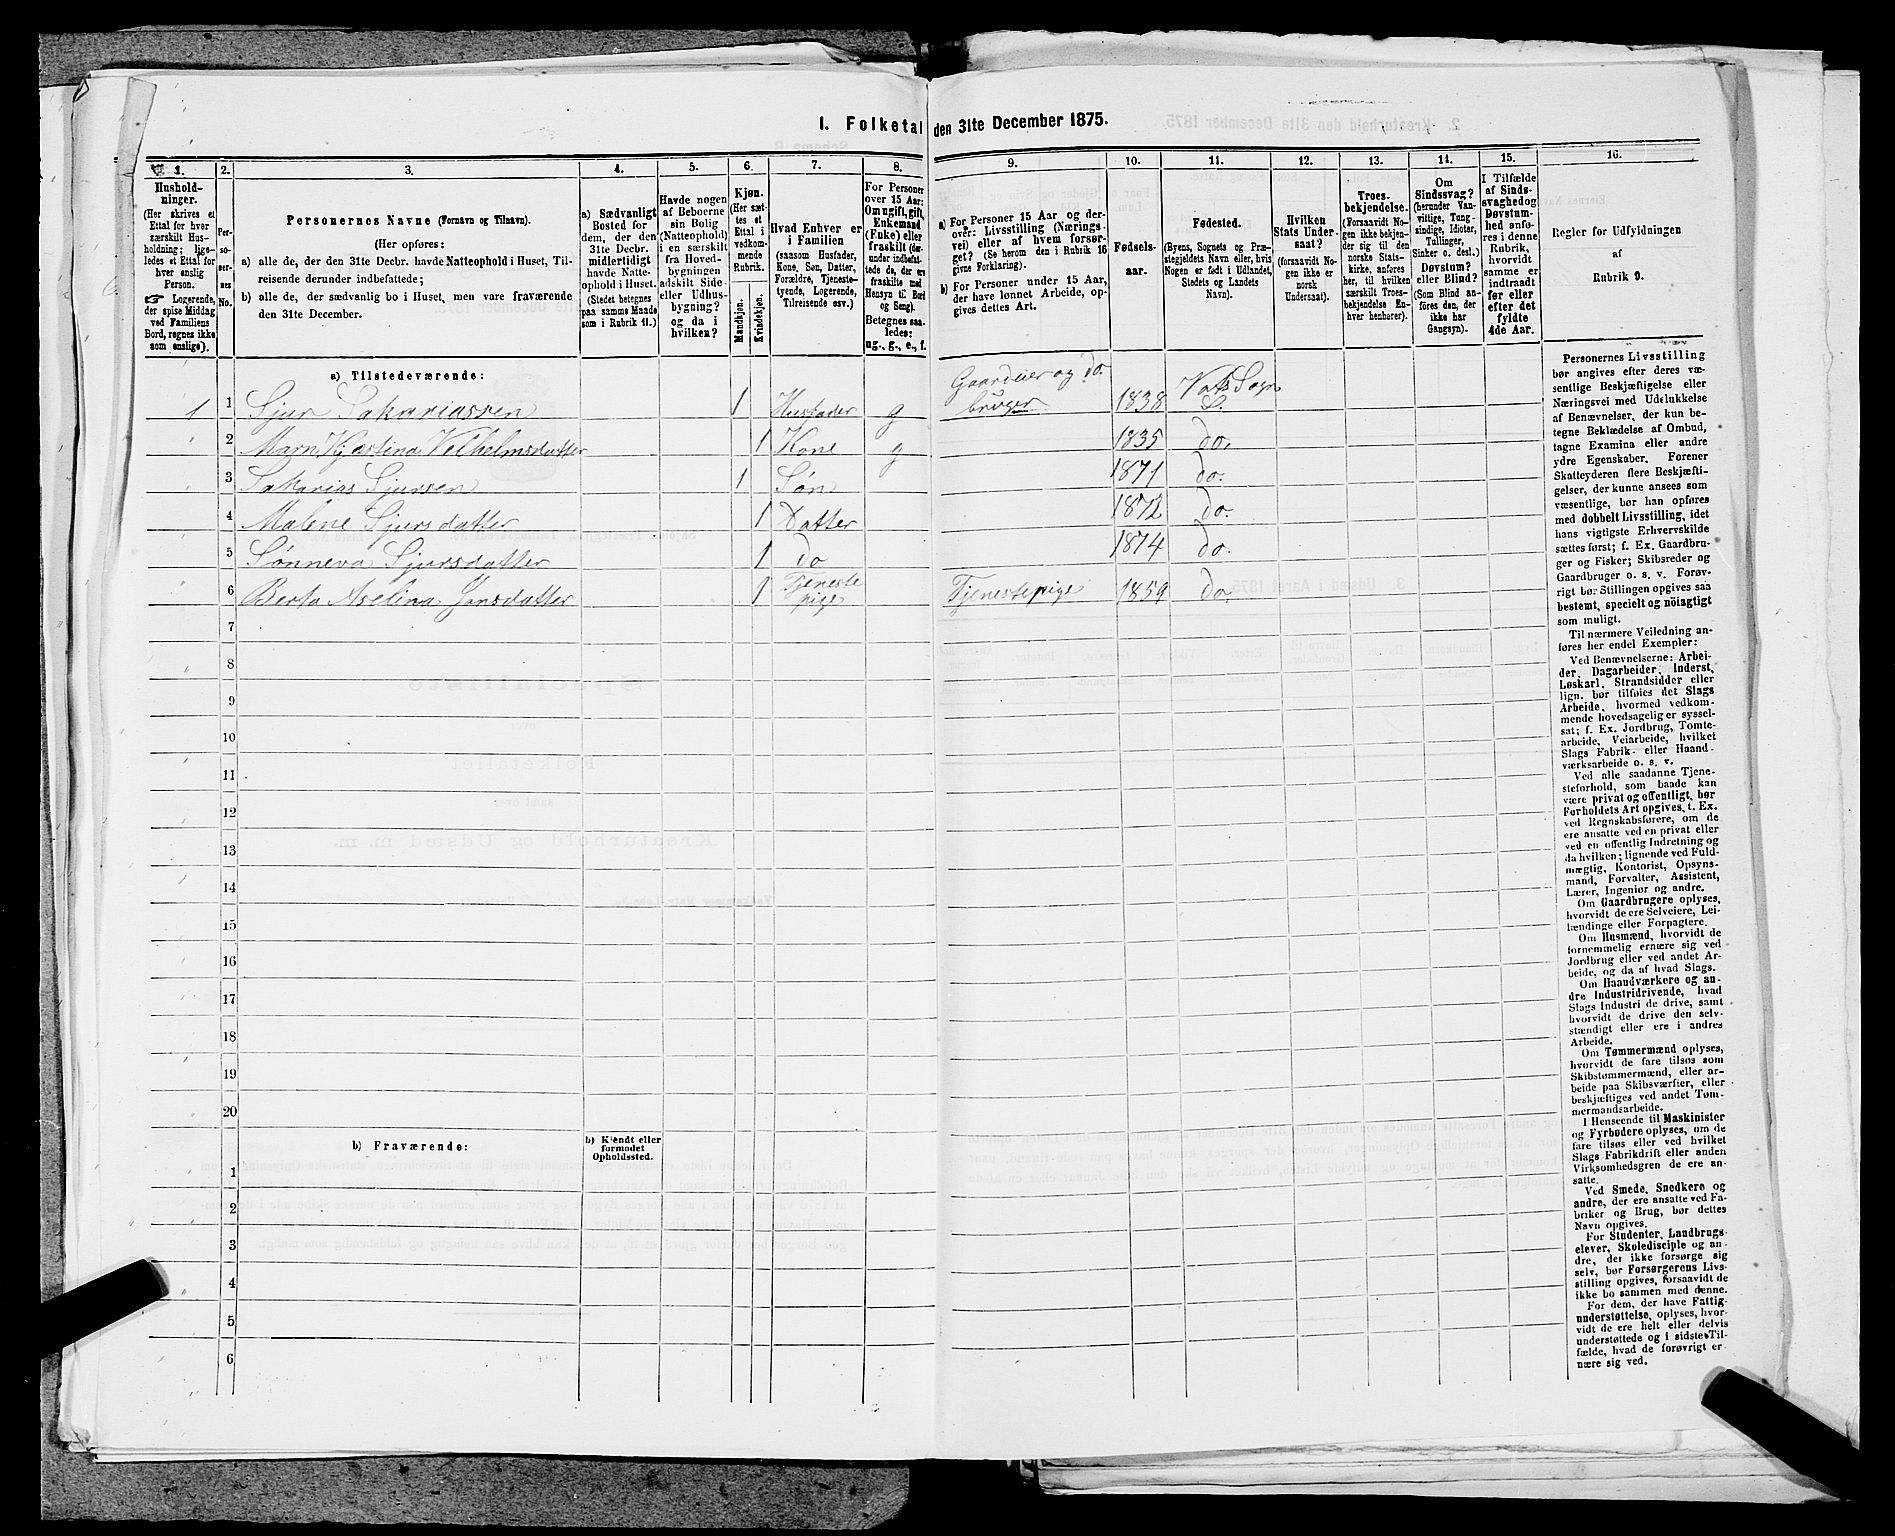 I. Folketal den 31te December 1875.
1. 2. 3. 4. 5. 6. 7. 8. 9. 10. 11. 12. 13. 14. 15. 16.
Hushold-
ninger.
(Her skrives et
Ettal for hver
særskilt Hus-
holdning; lige-
ledes et Ettal for
hver enslig
Person.
☞ Logerende,
der spise Middag
ved Familiens
Bord, regnes ikke
som enslige).
Per-
so-
ner-
nes
No.
Personernes Navne (Fornavn og Tilnavn).
(Her opføres:
a) alle de, der den 31te Decbr. havde Natteophold i Huset, Til-
reisende derunder indbefattede;
b) alle de, der sædvanlig bo i Huset, men vare fraværende
den 31te December.
a) Sædvanligt
Bosted for
dem, der den
31te Decbr.
midlertidigt
havde Natte-
ophold i Huset.
(Stedet betegnes
paa samme Maade
som i Rubrik 11.)
Havde nogen
af Beboerne
sin Bolig
(Natteophold)
i en særskilt
fra Hoved-
bygningen
adskilt Side-
eller Udhus-
bygning?
og da i
hvilken?
Kjøn.
(Her sæt-
tes et
Ettal i
vedkom-
mende
Rubrik.
Mandkjøn.
Kvindekjøn.
Hvad Enhver er
i Familien
(saasom Husfader,
Kone, Søn, Datter,
Forældre, Tjeneste-
tyende, Logerende,
Tilreisende osv.)
For Personer
over 15 Aar:
Om ugift, gift,
Enkemand
(Enke) eller
fraskilt (der-
under indbefat-
tede de, der ere
fraskilte med
Hensyn til Bord
og Seng).
Betegnes saa-
ledes:
ug., g., e., f.
a) For Personer 15 Aar og der-
over: Livsstilling (Nærings-
vei) eller af hvem forsør-
get? (Se herom den i Rubrik 16
givne Forklaring).
b) For Personer under 15 Aar,
der have lønnet Arbeide, op-
gives dettes Art.
Fødsels-
aar.
Fødested.
(Byens, Sognets og Præ-
stegjeldets Navn eller, hvis
Nogen er født i Udlandet,
Stedets og Landets
Navn).
Hvilken
Stats Under-
saat?
(forsaavidt No-
gen ikke er
norsk
Undersaat).
Troes-
bekjendelse.
(Forsaavidt No-
gen ikke bekjen-
der sig til den
norske Stats-
kirke, anføres
her, til hvilken
særskilt Troes-
bekjendelse En-
hver henhører).
Om
Sindssvag?
(herunder Van-
vittige, Tung-
sindige, Idioter,
Tullinger,
Sinker o. desl.)
Døvstum?
eller Blind?
(Som Blind an-
føres den, der
ikke har
Gangsyn).
I Tilfælde
af Sinds-
svaghed og
Døvstum-
hed anfø-
res i denne
Rubrik,
hvorvidt
samme er
indtraadt
før eller
efter det
fyldte
4de Aar.
Regler for Udfyldningen
af
Rubrik 9.
a) Tilstedeværende:
1 1 Sjur Sakariassen 1 Husfader g Gaardeier og do. bruger 1838 Vats Sogn
2 Marn Kjestina Velhelmsdatter 1 Kone g 1835 do.
3 Sakarias Sjursen 1 Søn 1871 do.
4 Malene Sjursdatter 1 Datter 1872 do.
5 Sønneva Sjursdatter 1 do 1874 do.
6 Berta Aselina Jansdatter 1 Tjeneste pige Tjenestepige 1859 do.
7
8
9
10
11
12
13
14
15
16
17
18
19
20
b) Fraværende:
b) Kjendt eller
formodet
Opholdssted.
1
2
3
4
5
6
Personernes Livsstilling
bør angives efter deres væ-
sentlige Beskjæftigelse eller
Næringsvei med Udelukkelse
af Benævnelser, der kun be-
tegne Beklædelse af Ombud,
tagne Examina eller andre
ydre Egenskaber. Forener
Skatteyderen flere Beskjæfti-
gelser, der kunne ansees som
væsentlige, bør han opføres
med dobbelt Livsstilling, idet
hans vigtigste Erhvervskilde
sættes først; f. Ex. Gaardbru-
ger og Fisker; Skibsreder og
Gaardbruger o. s. v. Forøv-
rigt bør Stillingen opgives saa
bestemt, specielt og nöiagtigt
som muligt.
Til nærmere Veiledning an-
føres her endel Exempler:
Ved Benævnelserne: Arbei-
der, Dagarbeider, Inderst,
Løskarl, Strandsidder eller
lign. bør tilføies det Slags
Arbeide, hvormed vedkom-
mende hovedsagelig er syssel-
sat; f. Ex. Jordbrug, Tomte-
arbeide, Veiarbeide, hvilket
Slags Fabrik- eller Haand-
værksarbeide o. s. v.
Ved alle saadanne Tjene-
steforhold, som baade kan
være privat og offentligt, bør
Forholdets Art opgives, t. Ex.
ved Regnskabsførere, om de
ere ansatte ved en privat eller
ved en offentlig Indretning og
da hvilken; lignende ved Fuld-
mægtig, Kontorist, Opsyns-
mand, Forvalter, Assistent,
Lærer, Ingeniør og andre.
Om Gaardbrugere oplyses,
hvorvidt de ere Selveiere, Lei-
lændinge eller Forpagtere.
Om Husmænd, hvorvidt de
fornemmelig ernære sig ved
Jordbrug eller ved andet Ar-
beide, og da af hvad Slags.
Om Haandværkere og an-
dre Industridrivende, hvad
Slags Industri de drive, samt
hvorvidt de drive den selv-
stændigt eller ere i andres
Arbeide.
Om Tømmermænd oplyses,
hvorvidt de fare tilsøs som
Skibstømmermænd, eller ar-
beide paa Skibsværfter, eller
beskjæftiges ved andet Tøm-
mermandsarbeide.
I Henseende til Maskinister
og Fyrbødere oplyses, om de
fare tilsøs eller ved hvilket
Slags Fabrikdrift eller anden
Virksomhedsgren de ere an-
satte.
Ved Smede, Snedkere og
andre, der ere ansatte ved Fa-
briker og Brug, bør dettes
Navn opgives.
For Studenter, Landbrugs-
elever, Skoledisciple og an-
dre, der ikke forsørge sig
selv, bør Forsørgerens Livs-
stilling opgives, forsaavidt de
ikke bo sammen med denne.
For dem, der have Fattig-
understøttelse, oplyses, hvor-
vidt de ere helt eller delvis
understøttede og i sidste Til-
fælde, hvad de forøvrigt er-
nære sig ved.